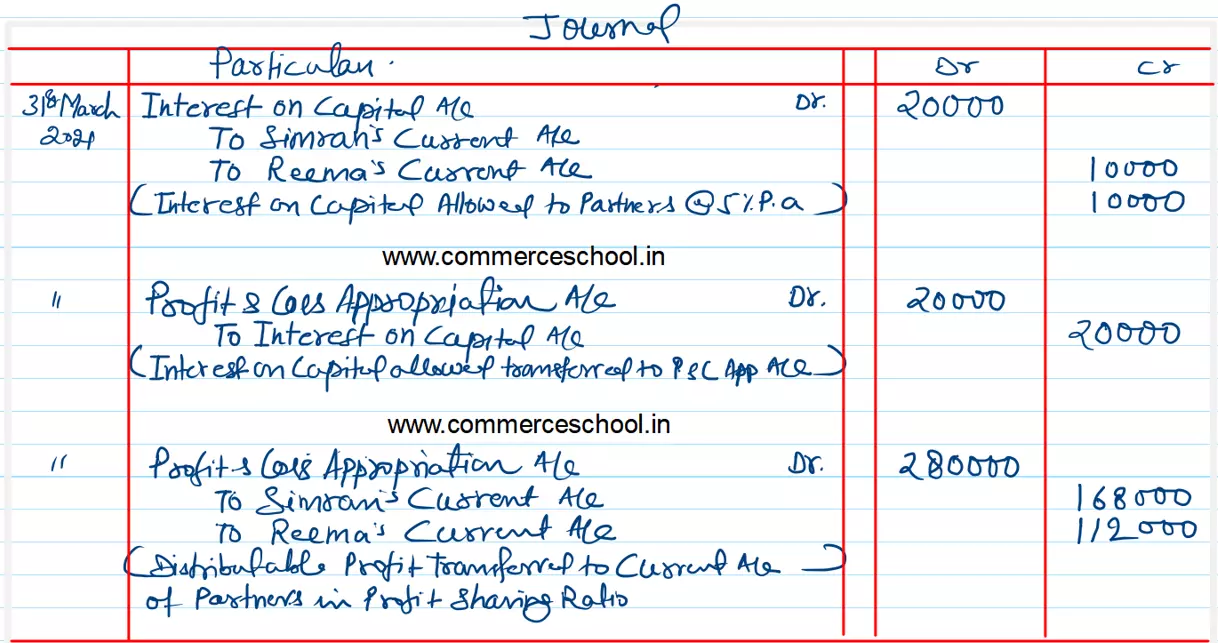 Journal
Particular. Dr Cr
31st March Interest on Capital A/c Dr. 20000
2021 To Simran's Current A/c
To Reema's Current A/c 10000
(Interest on Capital Allowed to Partners @ 5 %. P. a) 10000
www.commerceschool.in
" Profit & Loss Appropriation A/c Dr. 20000
To Interest on Capital A/c 20000
(Interest on Capital allowed transferred to P&L App A/c)
www.commerceschool.in
" Profit & Loss Appropriation A/c Dr. 280000
To Simran's Current A/c 168000
To Reema's Current A/c 112000
(Distributable Profit Transferred to Current A/c)
of Partners in Profit Sharing Ratio